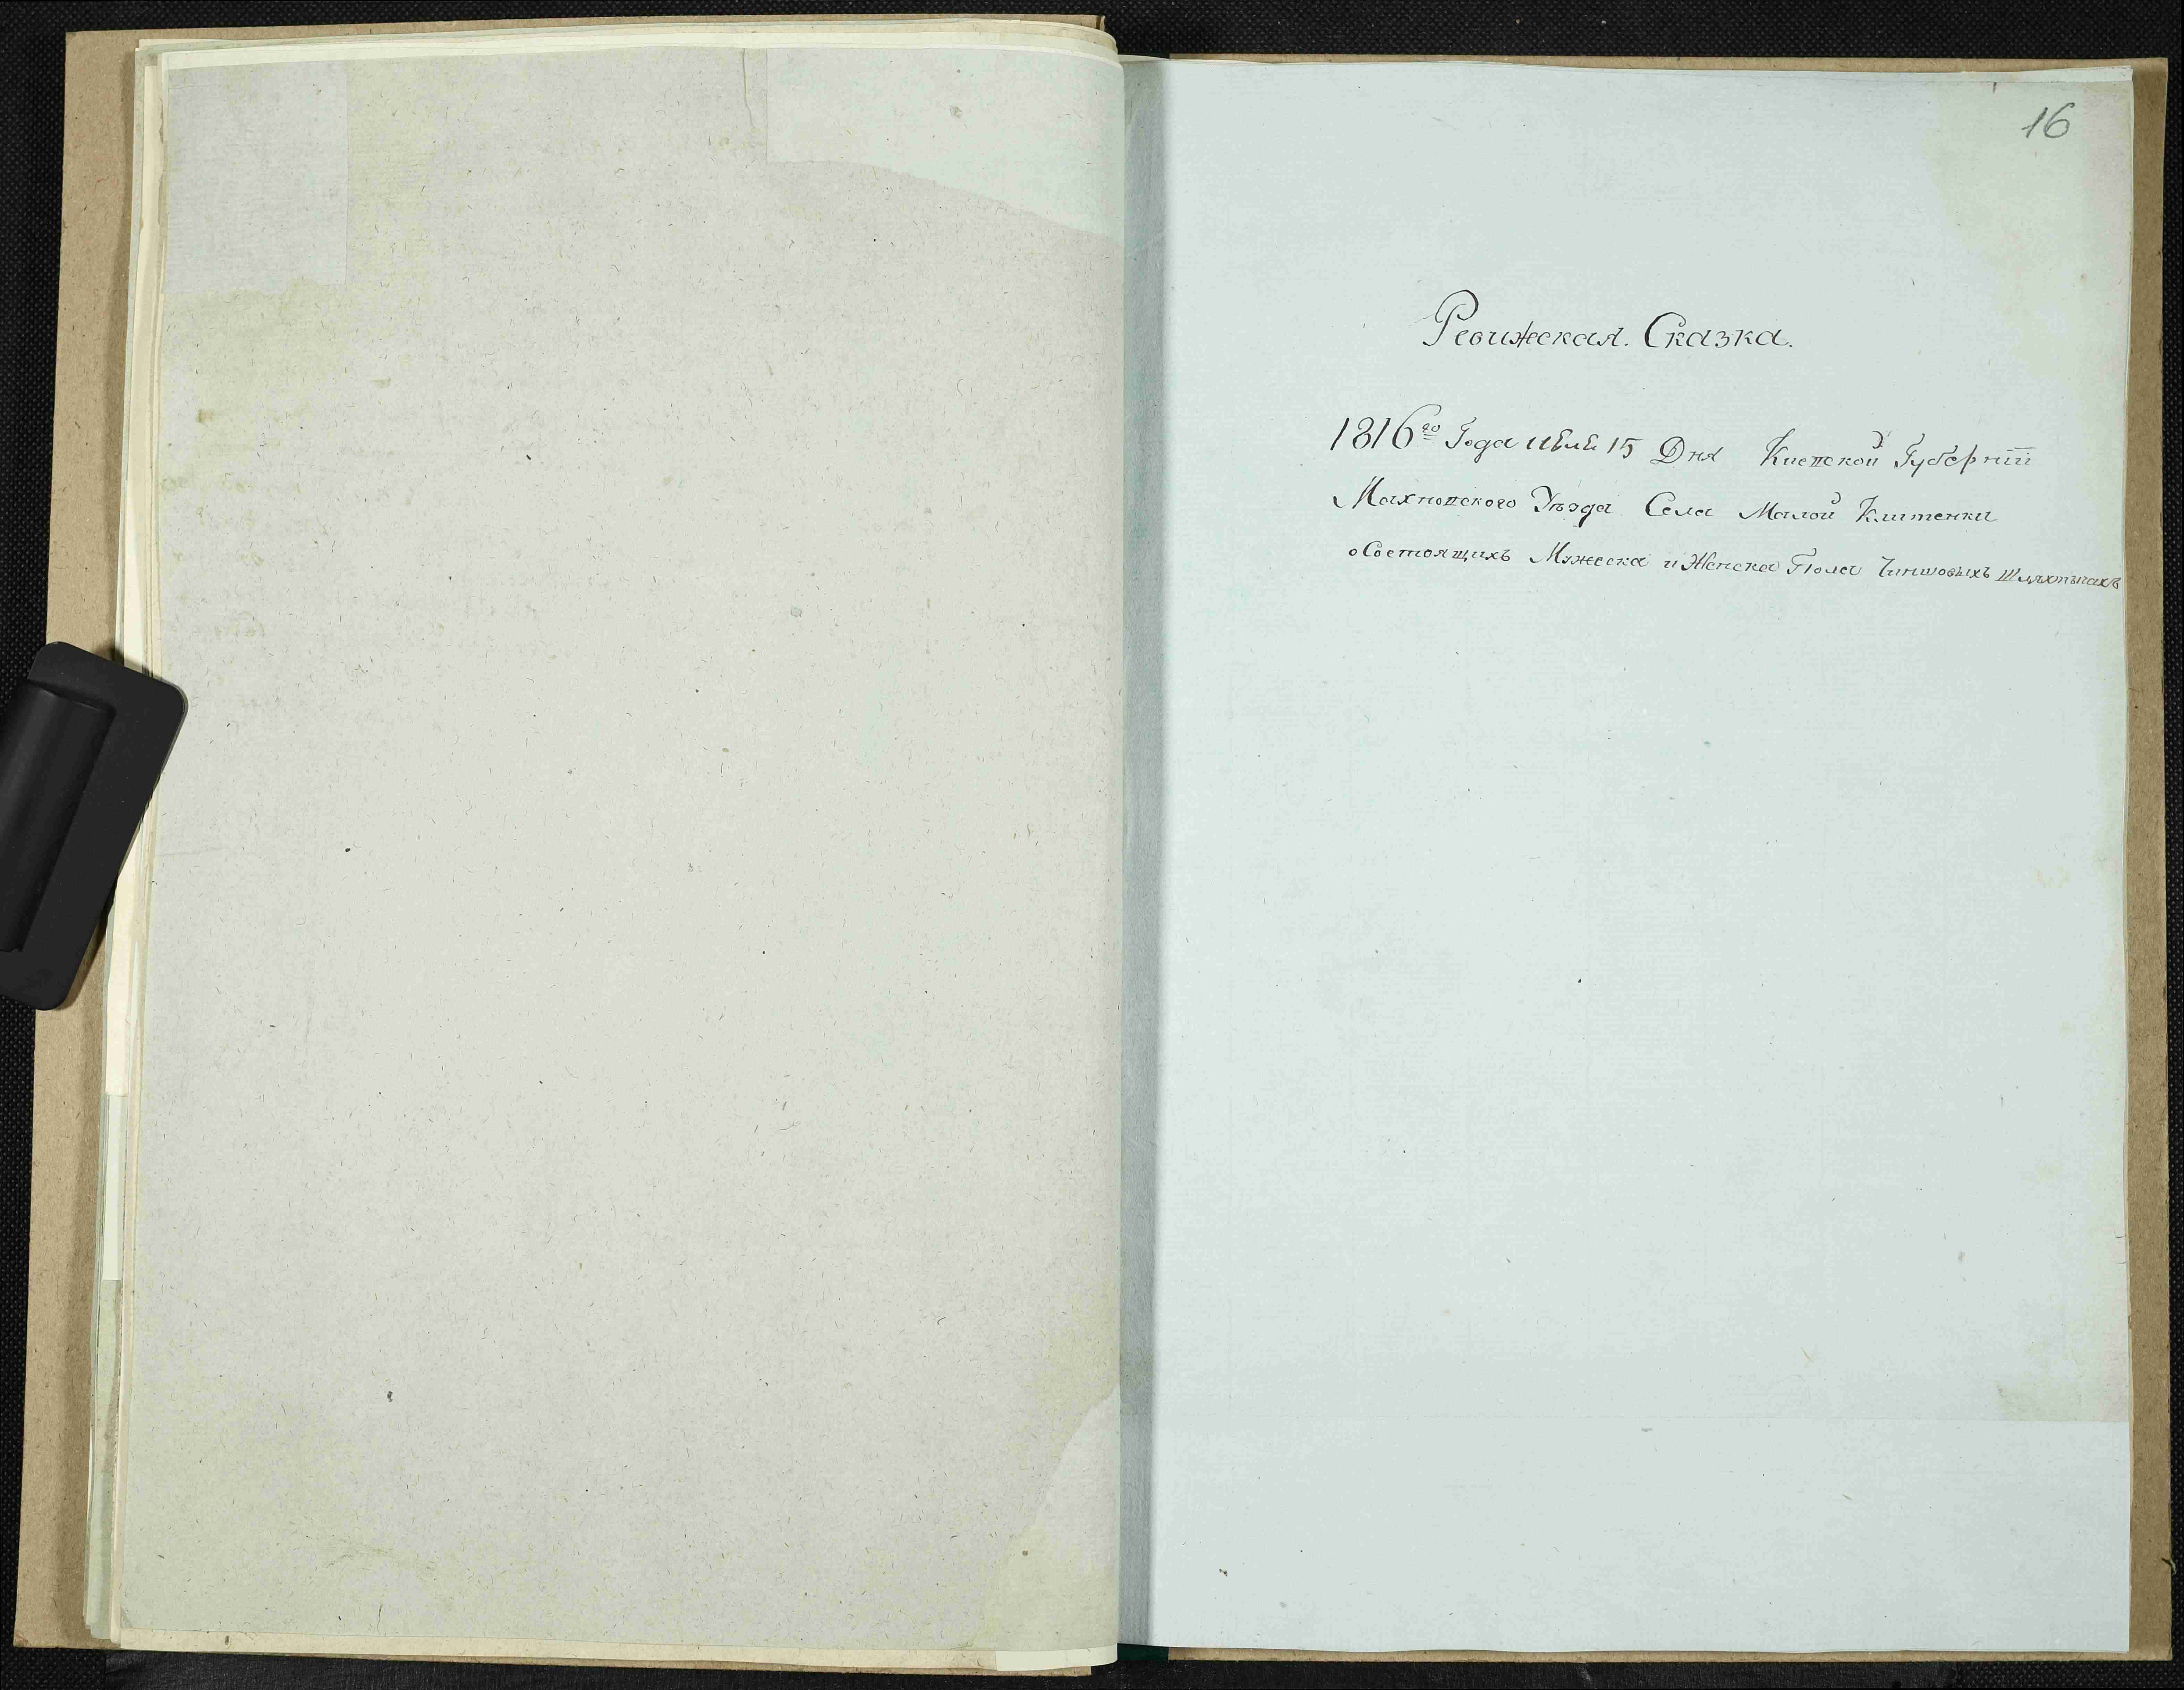 16
Ревижская. Сказка.
1816го Года июля 15 Дня Киевской Губернїи
Махновского Уезда Села Малой Клитенки
о Состоящихъ Мужеска и Женска Пола Чиншовыхъ Шляхтичахъ